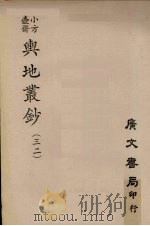 小方
壺齋
輿地叢鈔
(三二)
廣文書局印行